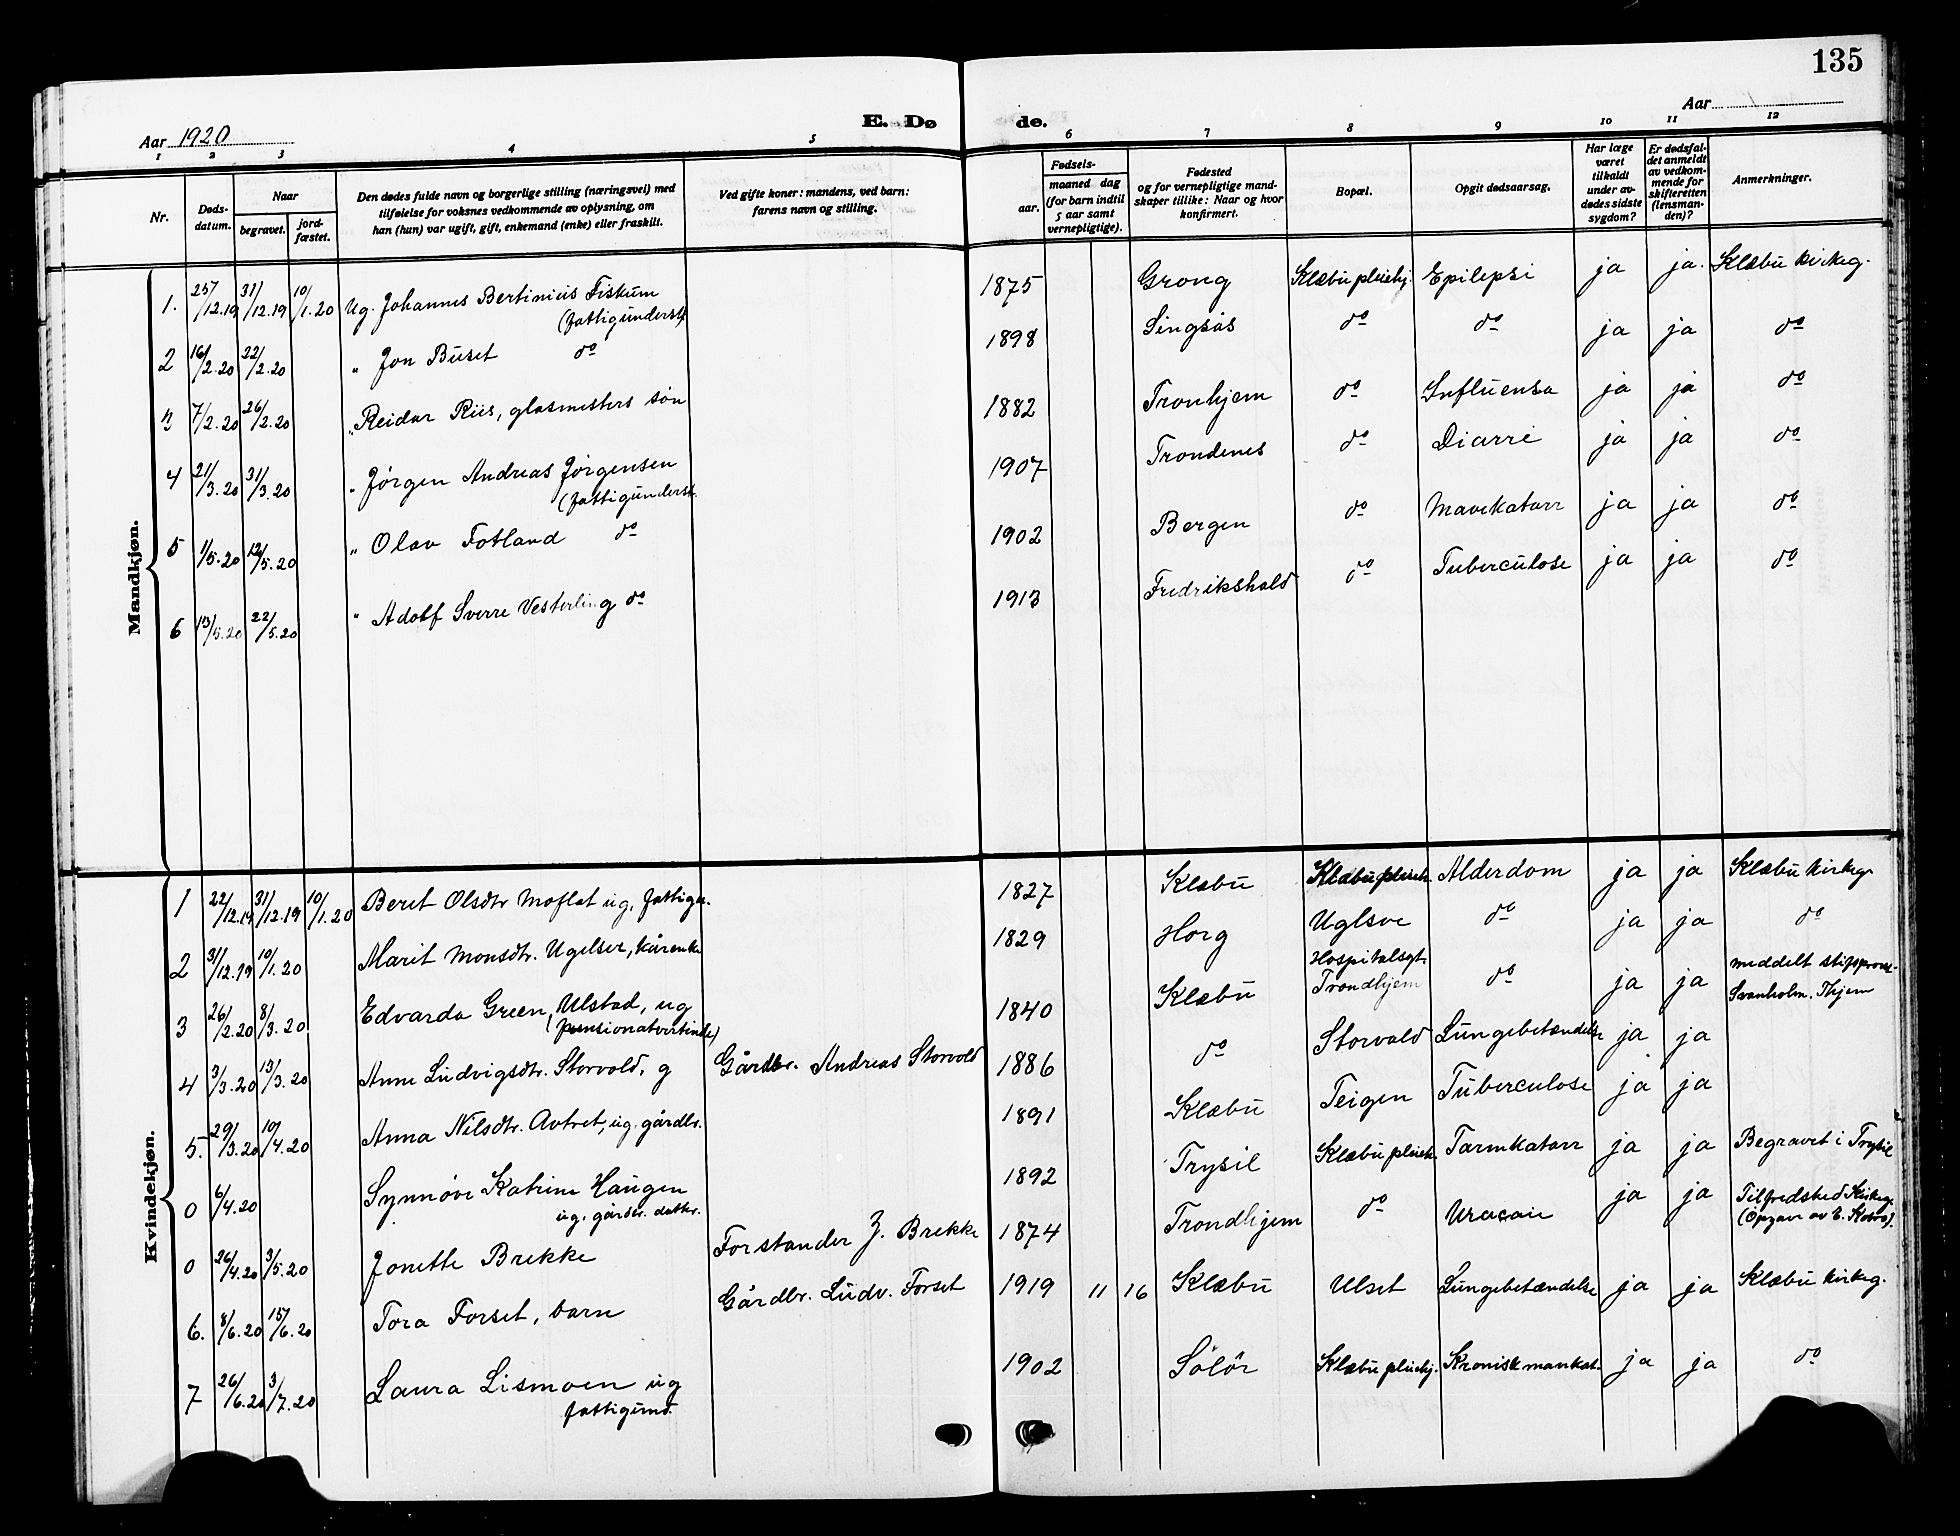 135
Aar 1920
E. Dø
de.
Aar
1 2 3 4 5 6 7 8 9 10 11 12
Nr.
Døds-
datum.
Naar
begravet.
jord-
fæstet.
Den dødes fulde navn og borgerlige stilling (næringsvei) med
tilføielse for voksnes vedkommende av oplysning, om
han (hun) var ugift, gift, enkemand (enke) eller fraskilt.
Ved gifte koner: mandens, ved barn:
farens navn og stilling.
Fødsels-
aar.
maaned dag
(for barn indtil
5 aar samt
vernepligtige).
Fødested
og for vernepligtige mand-
skaper tillike: Naar og hvor
konfirmert.
Bopæl.
Opgit dødsaarsag.
Har læge
været
tilkaldt
under av-
dødes sidste
sygdom?
Er dødsfal-
det anmeldt
av vedkom-
mende for
skifteretten
(lensman-
den)?
Anmerkninger.
Mandkjøn.
1. 25/12.19 31/12.19 10/1.20 Ug. Johannes Bertinius Fiskum 1875 Grong Klæbu pleiehj. Epilepsi ja ja. Klæbu kirkeg.
(fattigunderst.)
2 16/2.20 22/2.20 " Jon Buset do 1898 Singsås do do ja ja do
3 7/2.20 26/2.20 " Reidar Riis, glasmesters søn 1882 Tronhjem do Influensa ja ja do
4 21/3.20 31/3.20 " Jørgen Andreas Jørgensen 1907 Trondenes do Diarré ja ja do
(fattigunderst.
5 1/5.20 12/5.20 " Olav Fotland do 1902 Bergen do Mavekatarr ja ja do
6 13/5.20 22/5.20 " Adolf Sverre Vesterling do 1913 Fredrikshald do Tuberculose ja ja do
Kvindekjøn.
1 22/12.19 31/12.19 10/1.20 Beret Olsdtr Moflat ug, fattigu. 1827 Klæbu Klæbu pleieh. Alderdom ja ja Klæbu kirkeg.
2 31/12.19 10/1.20 Marit Monsdtr. Ugelser, kårenke 1829 Horg Uglsve do ja ja do
3 26/2.20 8/3.20 Edvarda Green, Ulstad, ug 1840 Klæbu Hospitalsgt. Trondhjem do ja ja meddelt stifsprovst
(pensionatvertinde) Svanholm, Thjem
4 3/3.20 13/3.20 Anne Ludvigsdtr. Storvold, g Gårdbr. Andreas Storvold 1886 do Storvald Lungebetændelse ja ja
5. 29/3.20 10/4.20 Anna Nilsdtr. Avtret, ug. gårdbr. 1891 Klæbu Teigen Tuberculose ja ja
0 6/4.20 Synnøve Katrine Haugen 1892 Trysil Klæbu pleieh. Tarmkatarr ja ja Begravet i Trysil
ug. gårdbr. datter.
0 26/4.20 3/5.20 Jonette Brekke Forstander J. Brekke 1874 Trondhjem do ja ja Tilfredshed Kirkeg.
6. 8/6.20 15/6.20 Tora Forset, barn Gårdbr. Ludv. Forset 1919 11 16 Klæbu Ulset Lungebetændelse ja ja Klæbu kirkeg.
7 26/6.20 3/7.20 Laura Lismoen ug 1902 Sölör Klæbu pleiehj. Kronisk mavekat. ja ja do
fattigund.